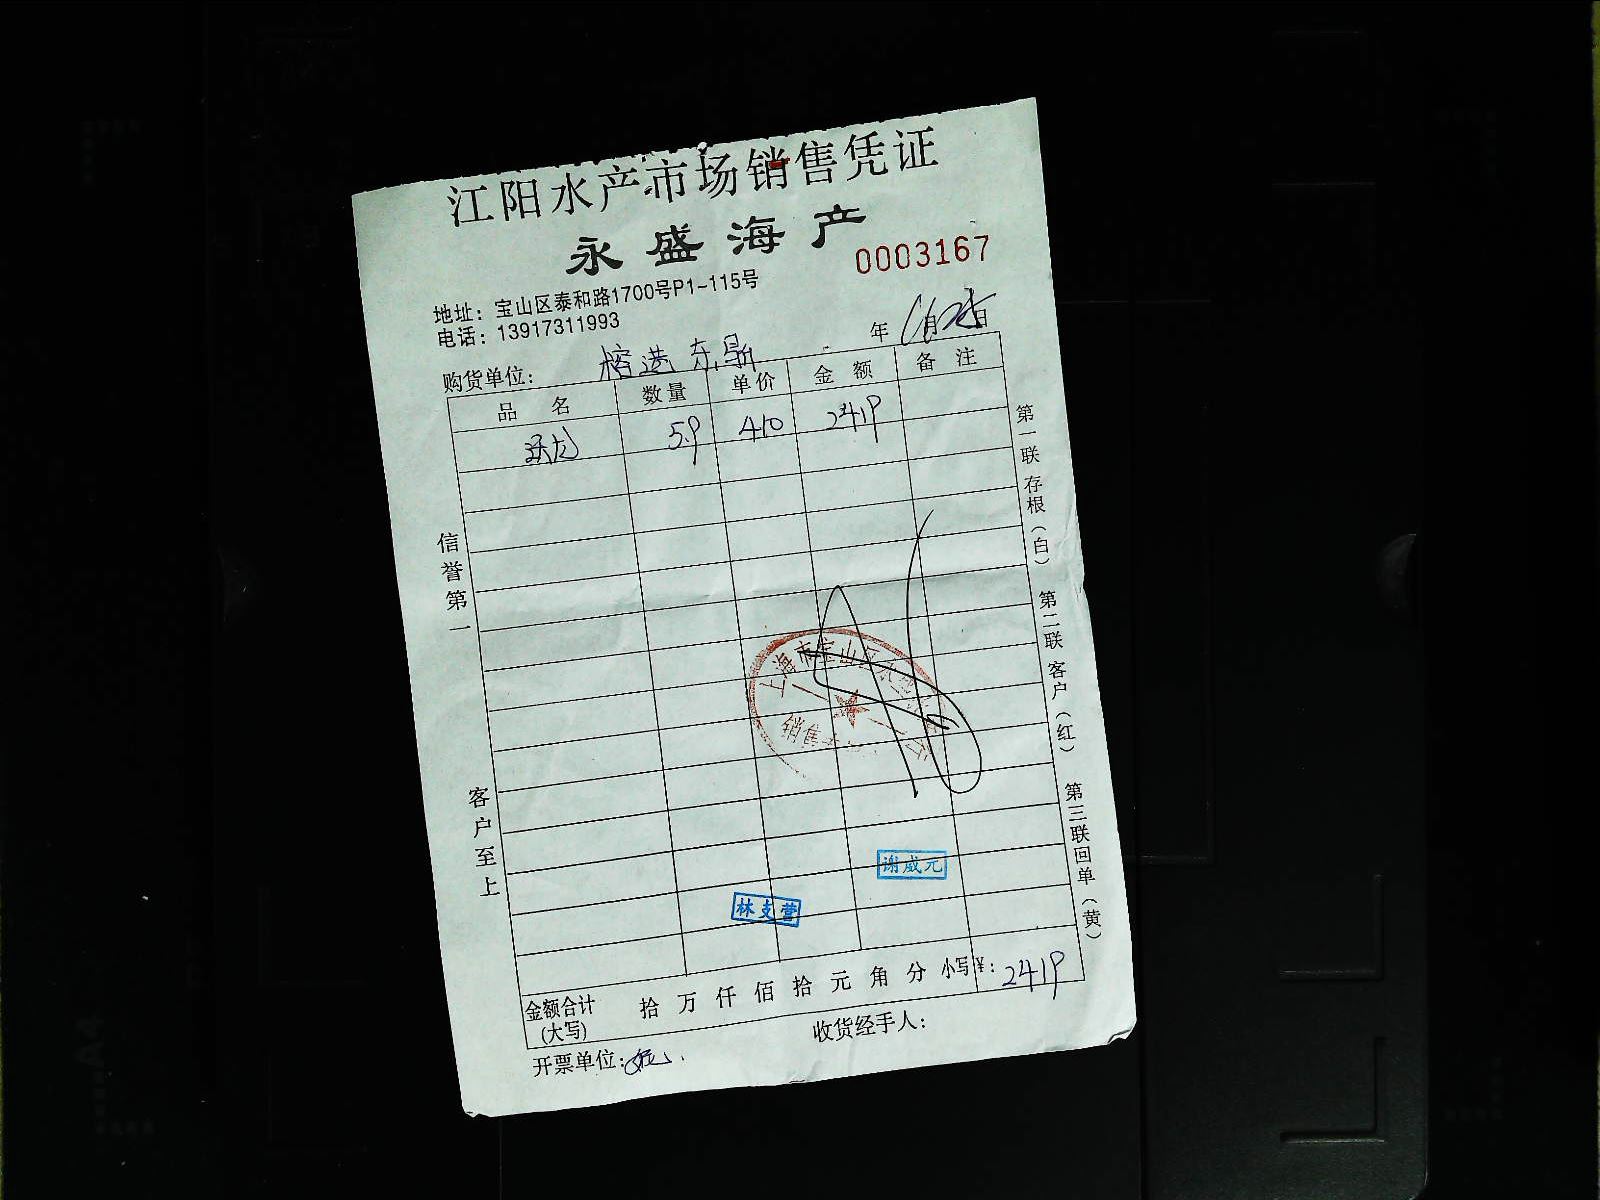 江阳水产市场销售凭证
永盛海产
0003167
地址：宝山区泰和路1700号P1-115号
电话：13917311993
年 11月25日
购货单位：榕造 东鼎
品 名 数量 单价 金 额 备 注
沃龙 5.9 410 2419
信誉第一
客户至上
第一联存根（白）
第二联客户（红）
第三联回单（黄）
上海市宝山区
销售
谢威元
林支营
金额合计 拾 万 仟 佰 拾 元 角 分 小写¥：2419
（大写）
收货经手人：
开票单位：